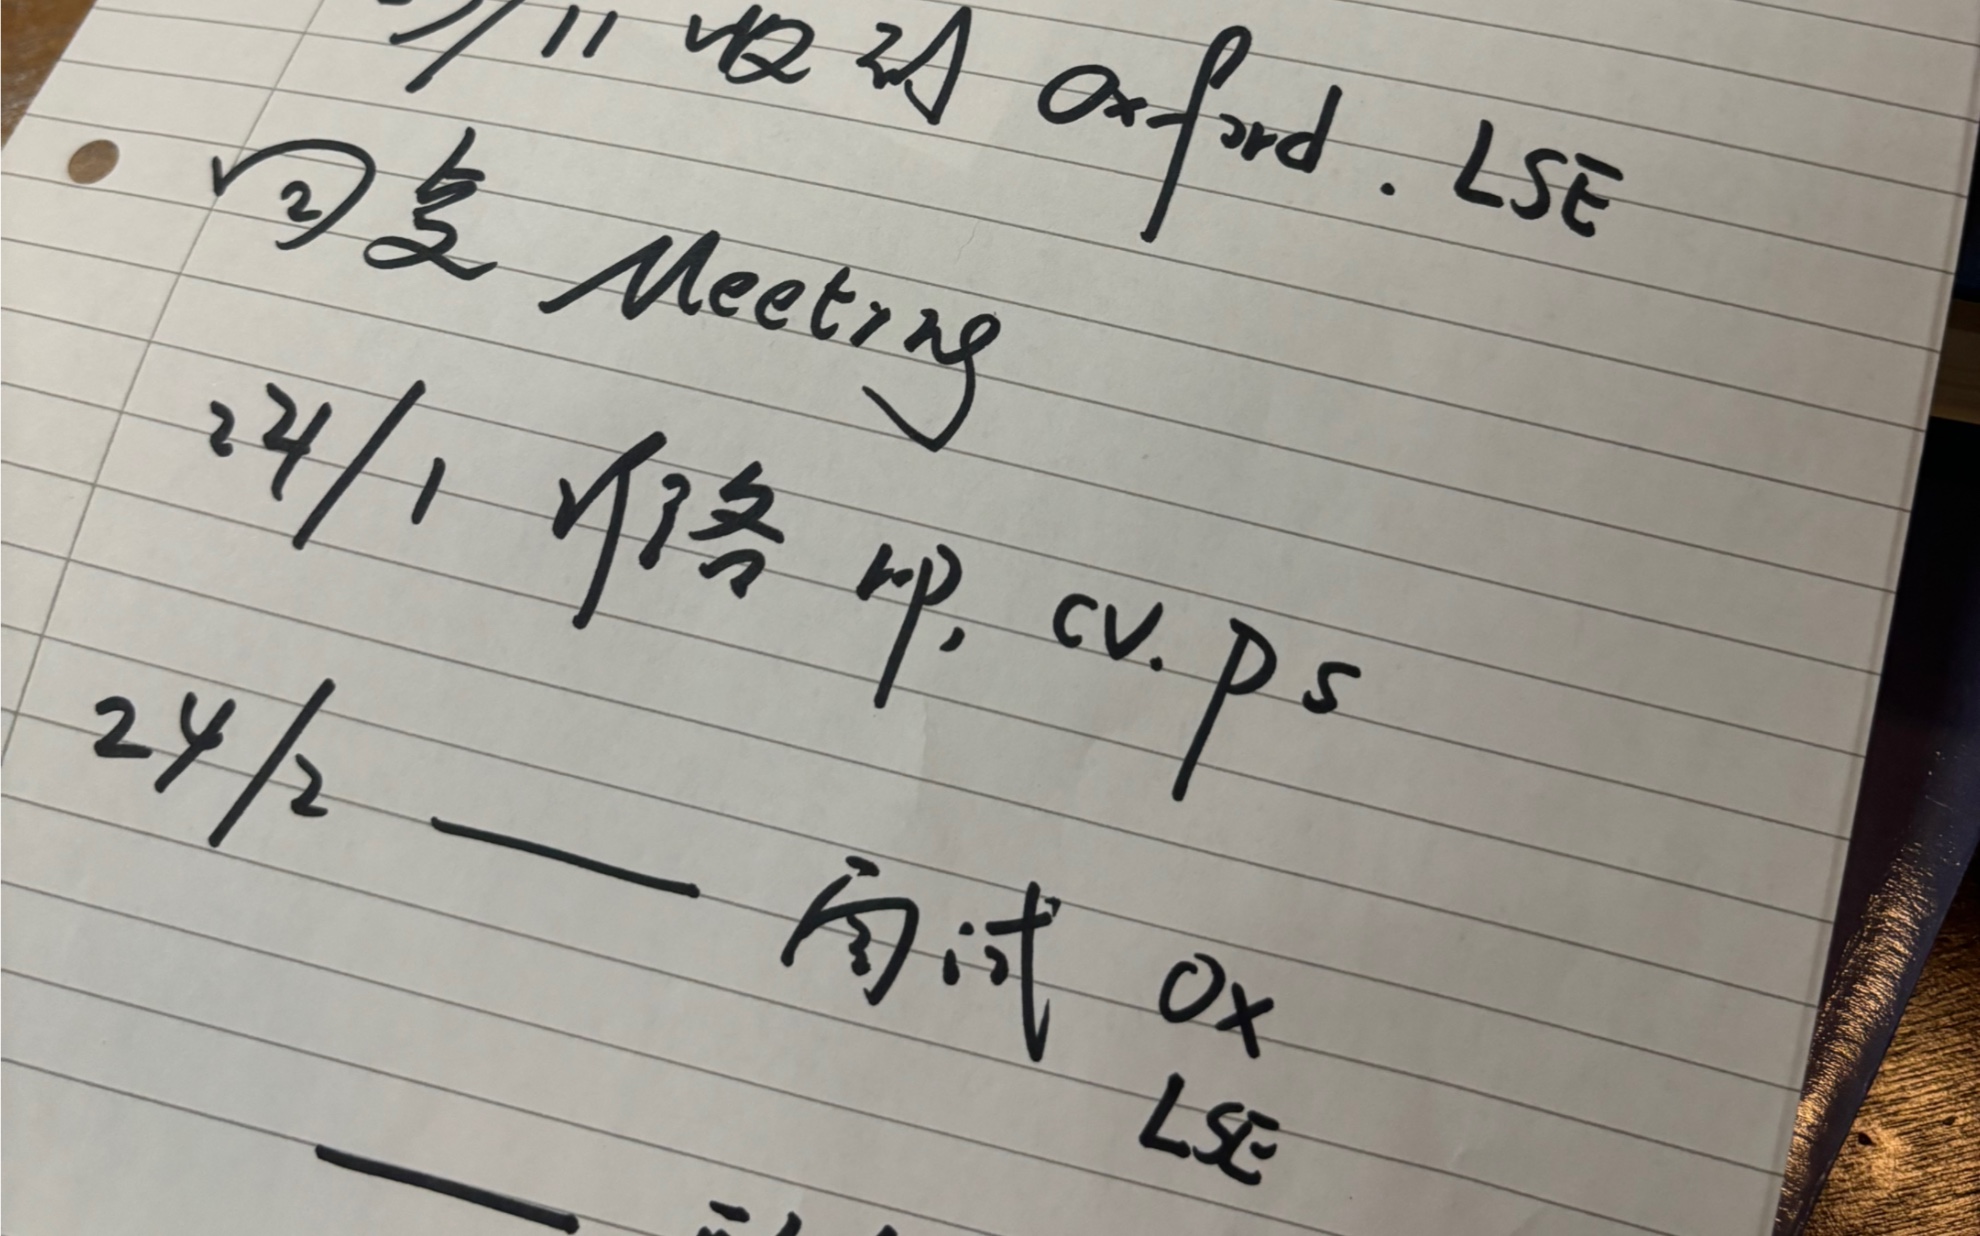 /11 收到 Oxford. LSE
回复 Meeting
24/1 修 rp, cv. ps
24/2 — 面试 Ox
LSE
—